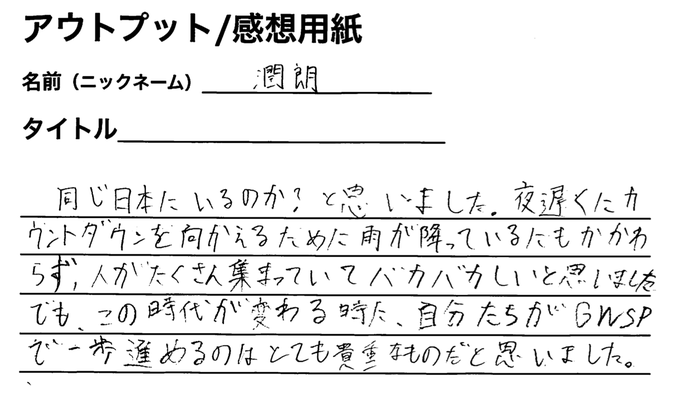 アウトプット/感想用紙
名前（ニックネーム） 潤朗
タイトル
同じ日本にいるのか？と思いました。夜遅くにカ
ウントダウンを向かえるために雨が降っているにもかかわ
らず、人がたくさん集まっていてバカバカしいと思いました
でも、この時代が変わる時に、自分たちがGWSP
で一歩進めるのはとても貴重なものだと思いました。